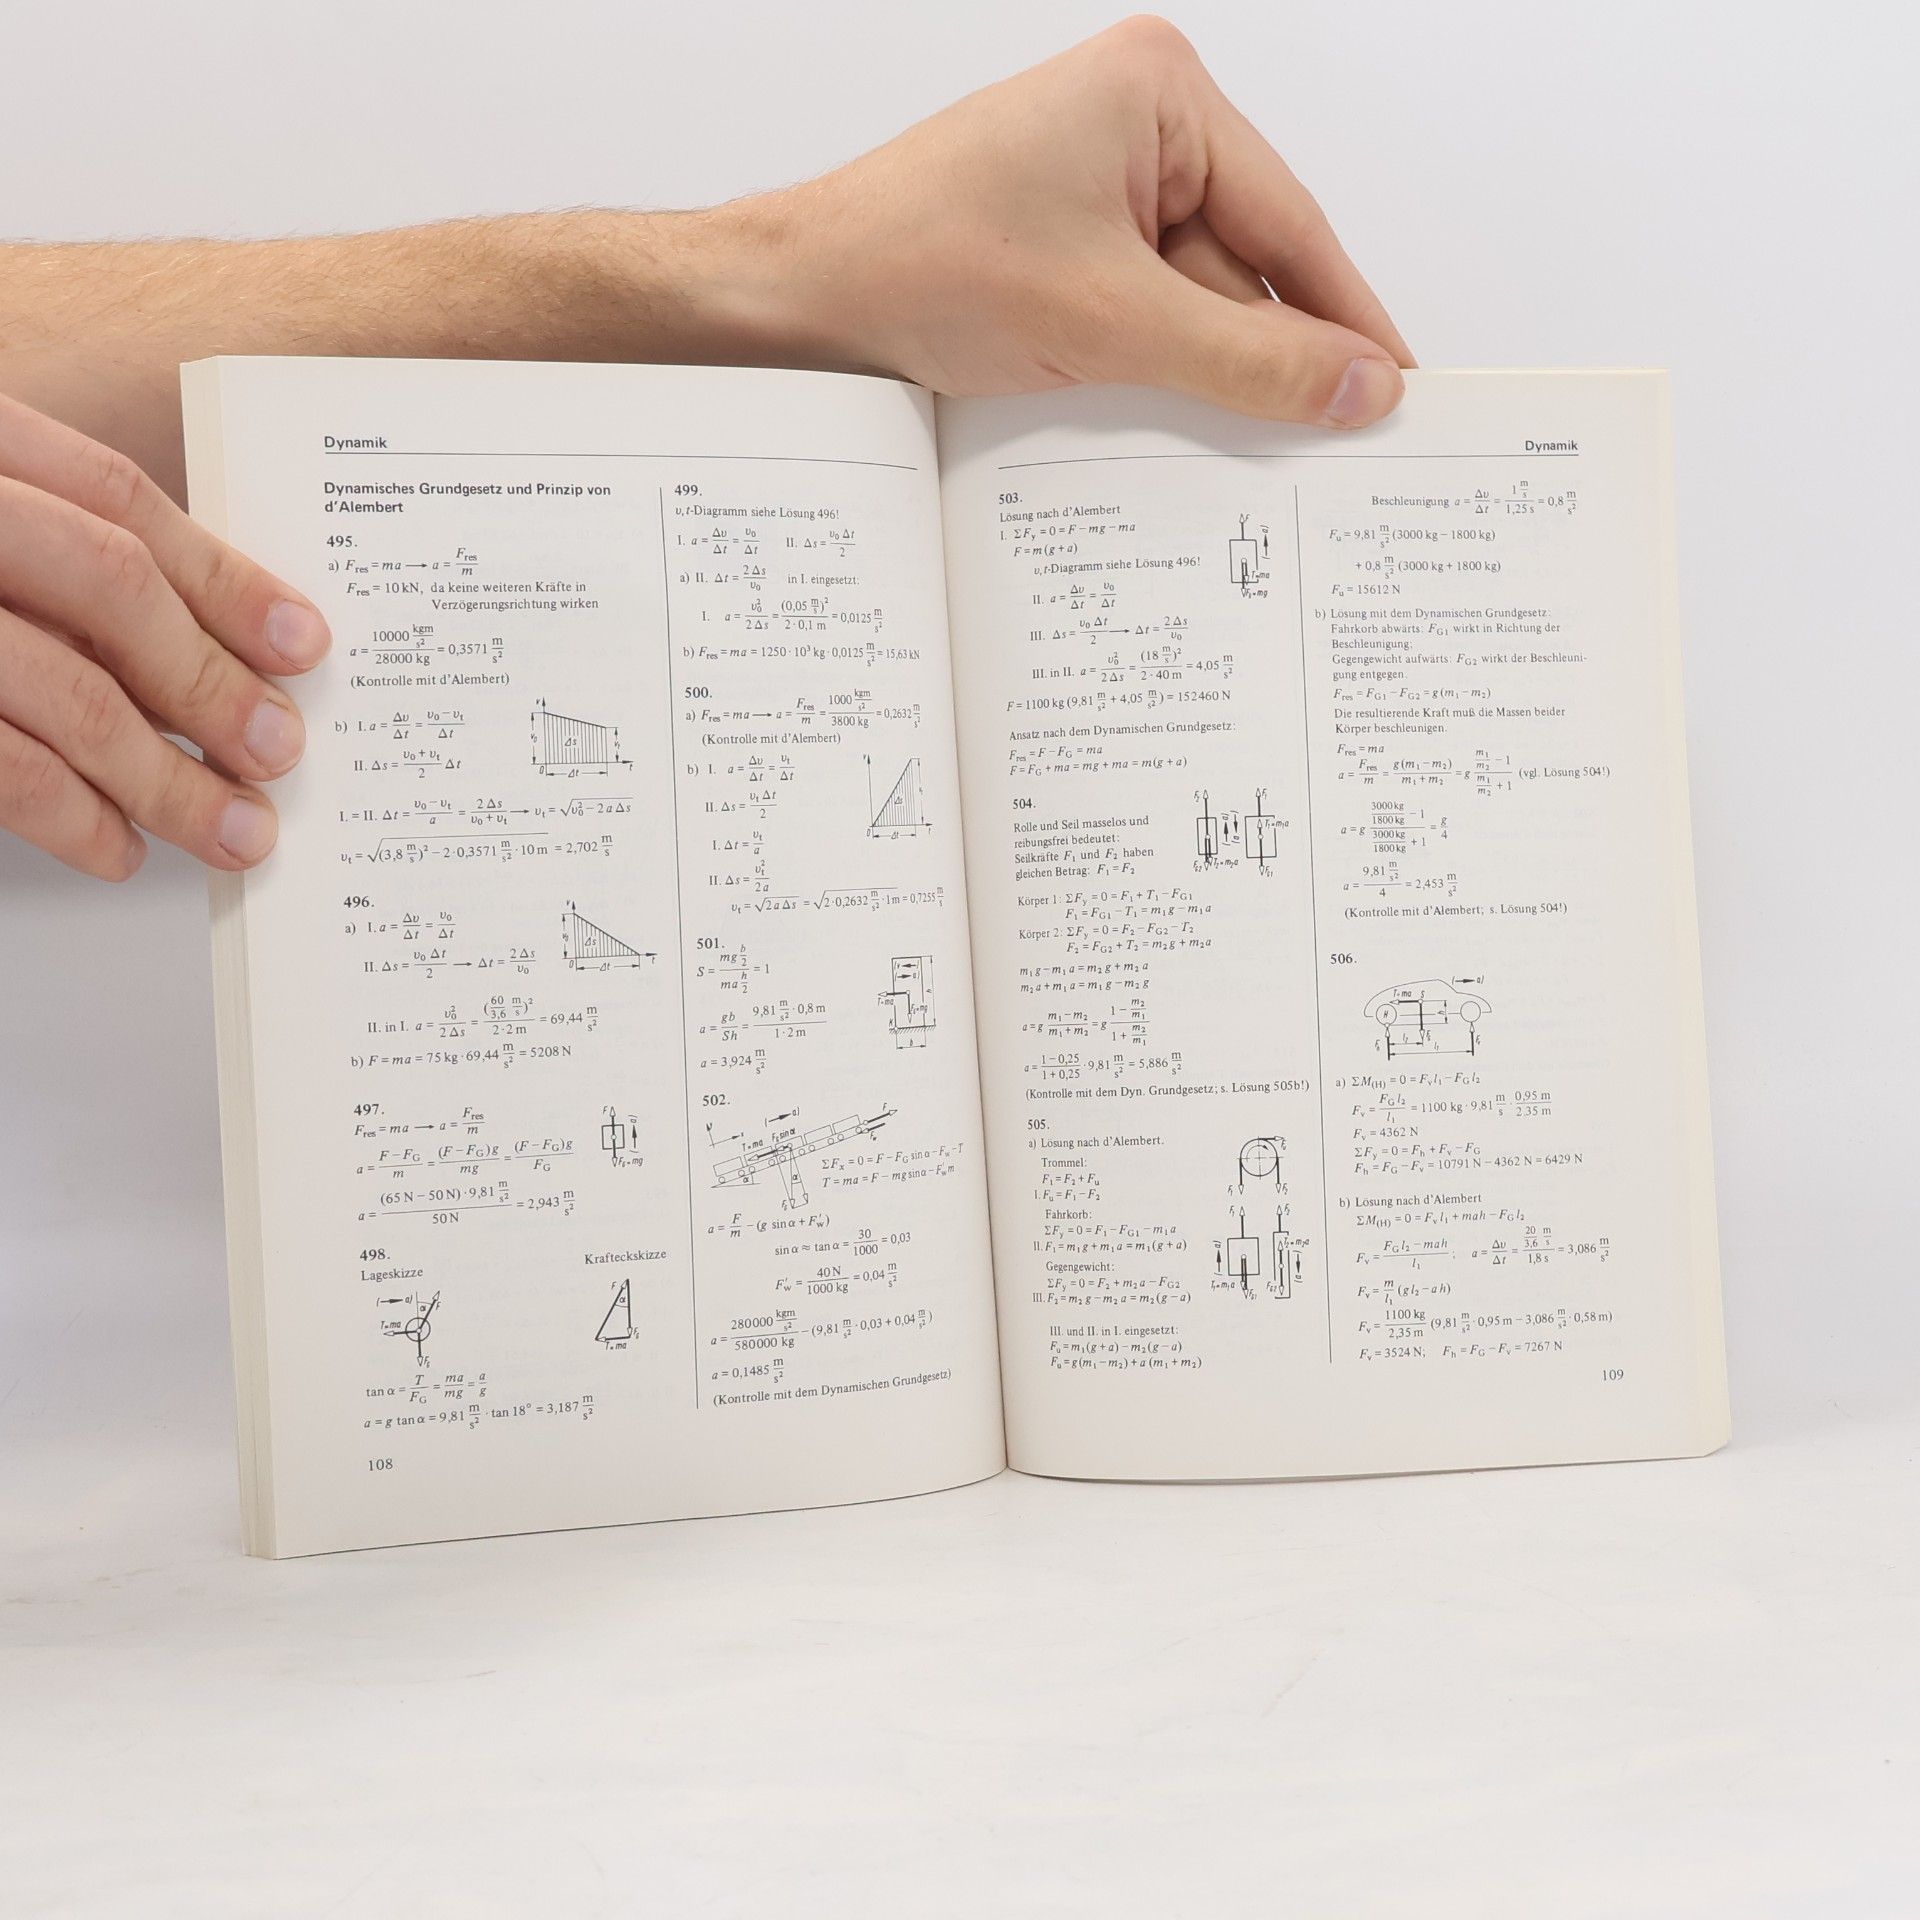 Dynamik
Dynamisches Grundgesetz und Prinzip von
d'Alembert
495.
a) F_res = ma → a = F_res/m
F_res = 10 kN, da keine weiteren Kräfte in
Verzögerungsrichtung wirken
a = (10000 kgm/s²)/(28000 kg) = 0,3571 m/s²
(Kontrolle mit d'Alembert)
b) I. a = Δυ/Δt = (υ₀ − υ_t)/Δt
II. Δs = (υ₀ + υ_t)/2 Δt
I. = II. Δt = (υ₀ − υ_t)/a = 2Δs/(υ₀ + υ_t) → υ_t = √(υ₀² − 2aΔs)
υ_t = √((3,8 m/s)² − 2·0,3571 m/s²·10 m) = 2,702 m/s
496.
a) I. a = Δυ/Δt = υ₀/Δt
II. Δs = υ₀Δt/2 → Δt = 2Δs/υ₀
II. in I. a = υ₀²/(2Δs) = (60/3,6 m/s)²/(2·2 m) = 69,44 m/s²
b) F = ma = 75 kg·69,44 m/s² = 5208 N
497.
F_res = ma → a = F_res/m
a = (F − F_G)/m = (F − F_G)g/(mg) = (F − F_G)g/F_G
a = (65 N − 50 N)·9,81 m/s²/(50 N) = 2,943 m/s²
498.
Lageskizze Krafteckskizze
tan α = T/F_G = ma/mg = a/g
a = g tan α = 9,81 m/s² · tan 18° = 3,187 m/s²
108
499.
υ, t-Diagramm siehe Lösung 496!
I. a = Δυ/Δt = υ₀/Δt II. Δs = υ₀Δt/2
a) II. Δt = 2Δs/υ₀ in I. eingesetzt:
I. a = υ₀²/(2Δs) = (0,05 m/s)²/(2·0,1 m) = 0,0125 m/s²
b) F_res = ma = 1250·10³ kg·0,0125 m/s² = 15,63 kN
500.
a) F_res = ma → a = F_res/m = (1000 kgm/s²)/(3800 kg) = 0,2632 m/s²
(Kontrolle mit d'Alembert)
b) I. a = Δυ/Δt = υ_t/Δt
II. Δs = υ_tΔt/2
I. Δt = υ_t/a
II. Δs = υ_t²/(2a)
υ_t = √(2aΔs) = √(2·0,2632 m/s²·1m) = 0,7255 m/s
501.
S = (mg b/2)/(ma h/2) = 1
a = gb/(Sh) = (9,81 m/s²·0,8 m)/(1·2 m)
a = 3,924 m/s²
502.
ΣF_x = 0 = F − F_G sin α − F_w − T
T = ma = F − mg sin α − F_w m
a = F/m − (g sin α + F'_w)
sin α ≈ tan α = 30/1000 = 0,03
F'_w = 40 N/1000 kg = 0,04 m/s²
a = (280000 kgm/s²)/(580000 kg) − (9,81 m/s²·0,03 + 0,04 m/s²)
a = 0,1485 m/s²
(Kontrolle mit dem Dynamischen Grundgesetz)
Dynamik
503.
Lösung nach d'Alembert
I. ΣF_y = 0 = F − mg − ma
F = m(g + a)
υ, t-Diagramm siehe Lösung 496!
II. a = Δυ/Δt = υ₀/Δt
III. Δs = υ₀Δt/2 → Δt = 2Δs/υ₀
III. in II. a = υ₀²/(2Δs) = (18 m/s)²/(2·40 m) = 4,05 m/s²
F = 1100 kg (9,81 m/s² + 4,05 m/s²) = 152460 N
Ansatz nach dem Dynamischen Grundgesetz:
F_res = F − F_G = ma
F = F_G + ma = mg + ma = m(g + a)
504.
Rolle und Seil masselos und
reibungsfrei bedeutet:
Seilkräfte F₁ und F₂ haben
gleichen Betrag: F₁ = F₂
Körper 1: ΣF_y = 0 = F₁ + T₁ − F_G1
F₁ = F_G1 − T₁ = m₁g − m₁a
Körper 2: ΣF_y = 0 = F₂ − F_G2 − T₂
F₂ = F_G2 + T₂ = m₂g + m₂a
m₁g − m₁a = m₂g + m₂a
m₂a + m₁a = m₁g − m₂g
a = g (m₁ − m₂)/(m₁ + m₂) = g (1 − m₂/m₁)/(1 + m₂/m₁)
a = (1 − 0,25)/(1 + 0,25) · 9,81 m/s² = 5,886 m/s²
(Kontrolle mit dem Dyn. Grundgesetz; s. Lösung 505b!)
505.
a) Lösung nach d'Alembert.
Trommel:
F₁ = F₂ + F_u
I. F_u = F₁ − F₂
Fahrkorb:
ΣF_y = 0 = F₁ − F_G1 − m₁a
II. F₁ = m₁g + m₁a = m₁(g + a)
Gegengewicht:
ΣF_y = 0 = F₂ + m₂a − F_G2
III. F₂ = m₂g − m₂a = m₂(g − a)
III. und II. in I. eingesetzt:
F_u = m₁(g + a) − m₂(g − a)
F_u = g(m₁ − m₂) + a(m₁ + m₂)
Beschleunigung a = Δυ/Δt = (1 m/s)/(1,25 s) = 0,8 m/s²
F_u = 9,81 m/s² (3000 kg − 1800 kg)
+ 0,8 m/s² (3000 kg + 1800 kg)
F_u = 15612 N
b) Lösung mit dem Dynamischen Grundgesetz:
Fahrkorb abwärts: F_G1 wirkt in Richtung der
Beschleunigung;
Gegengewicht aufwärts: F_G2 wirkt der Beschleuni-
gung entgegen.
F_res = F_G1 − F_G2 = g(m₁ − m₂)
Die resultierende Kraft muß die Massen beider
Körper beschleunigen.
F_res = ma
a = F_res/m = g(m₁ − m₂)/(m₁ + m₂) = g (m₁/m₂ − 1)/(m₁/m₂ + 1) (vgl. Lösung 504!)
a = g (3000 kg/1800 kg − 1)/(3000 kg/1800 kg + 1) = g/4
a = (9,81 m/s²)/4 = 2,453 m/s²
(Kontrolle mit d'Alembert; s. Lösung 504!)
506.
a) ΣM_(H) = 0 = F_v l₁ − F_G l₂
F_v = F_G l₂/l₁ = 1100 kg · 9,81 m/s · 0,95 m/2,35 m
F_v = 4362 N
ΣF_y = 0 = F_h + F_v − F_G
F_h = F_G − F_v = 10791 N − 4362 N = 6429 N
b) Lösung nach d'Alembert
ΣM_(H) = 0 = F_v l₁ + mah − F_G l₂
F_v = (F_G l₂ − mah)/l₁; a = Δυ/Δt = (20/3,6 m/s)/(1,8 s) = 3,086 m/s²
F_v = m/l₁ (gl₂ − ah)
F_v = 1100 kg/2,35 m (9,81 m/s²·0,95 m − 3,086 m/s²·0,58 m)
F_v = 3524 N; F_h = F_G − F_v = 7267 N
109